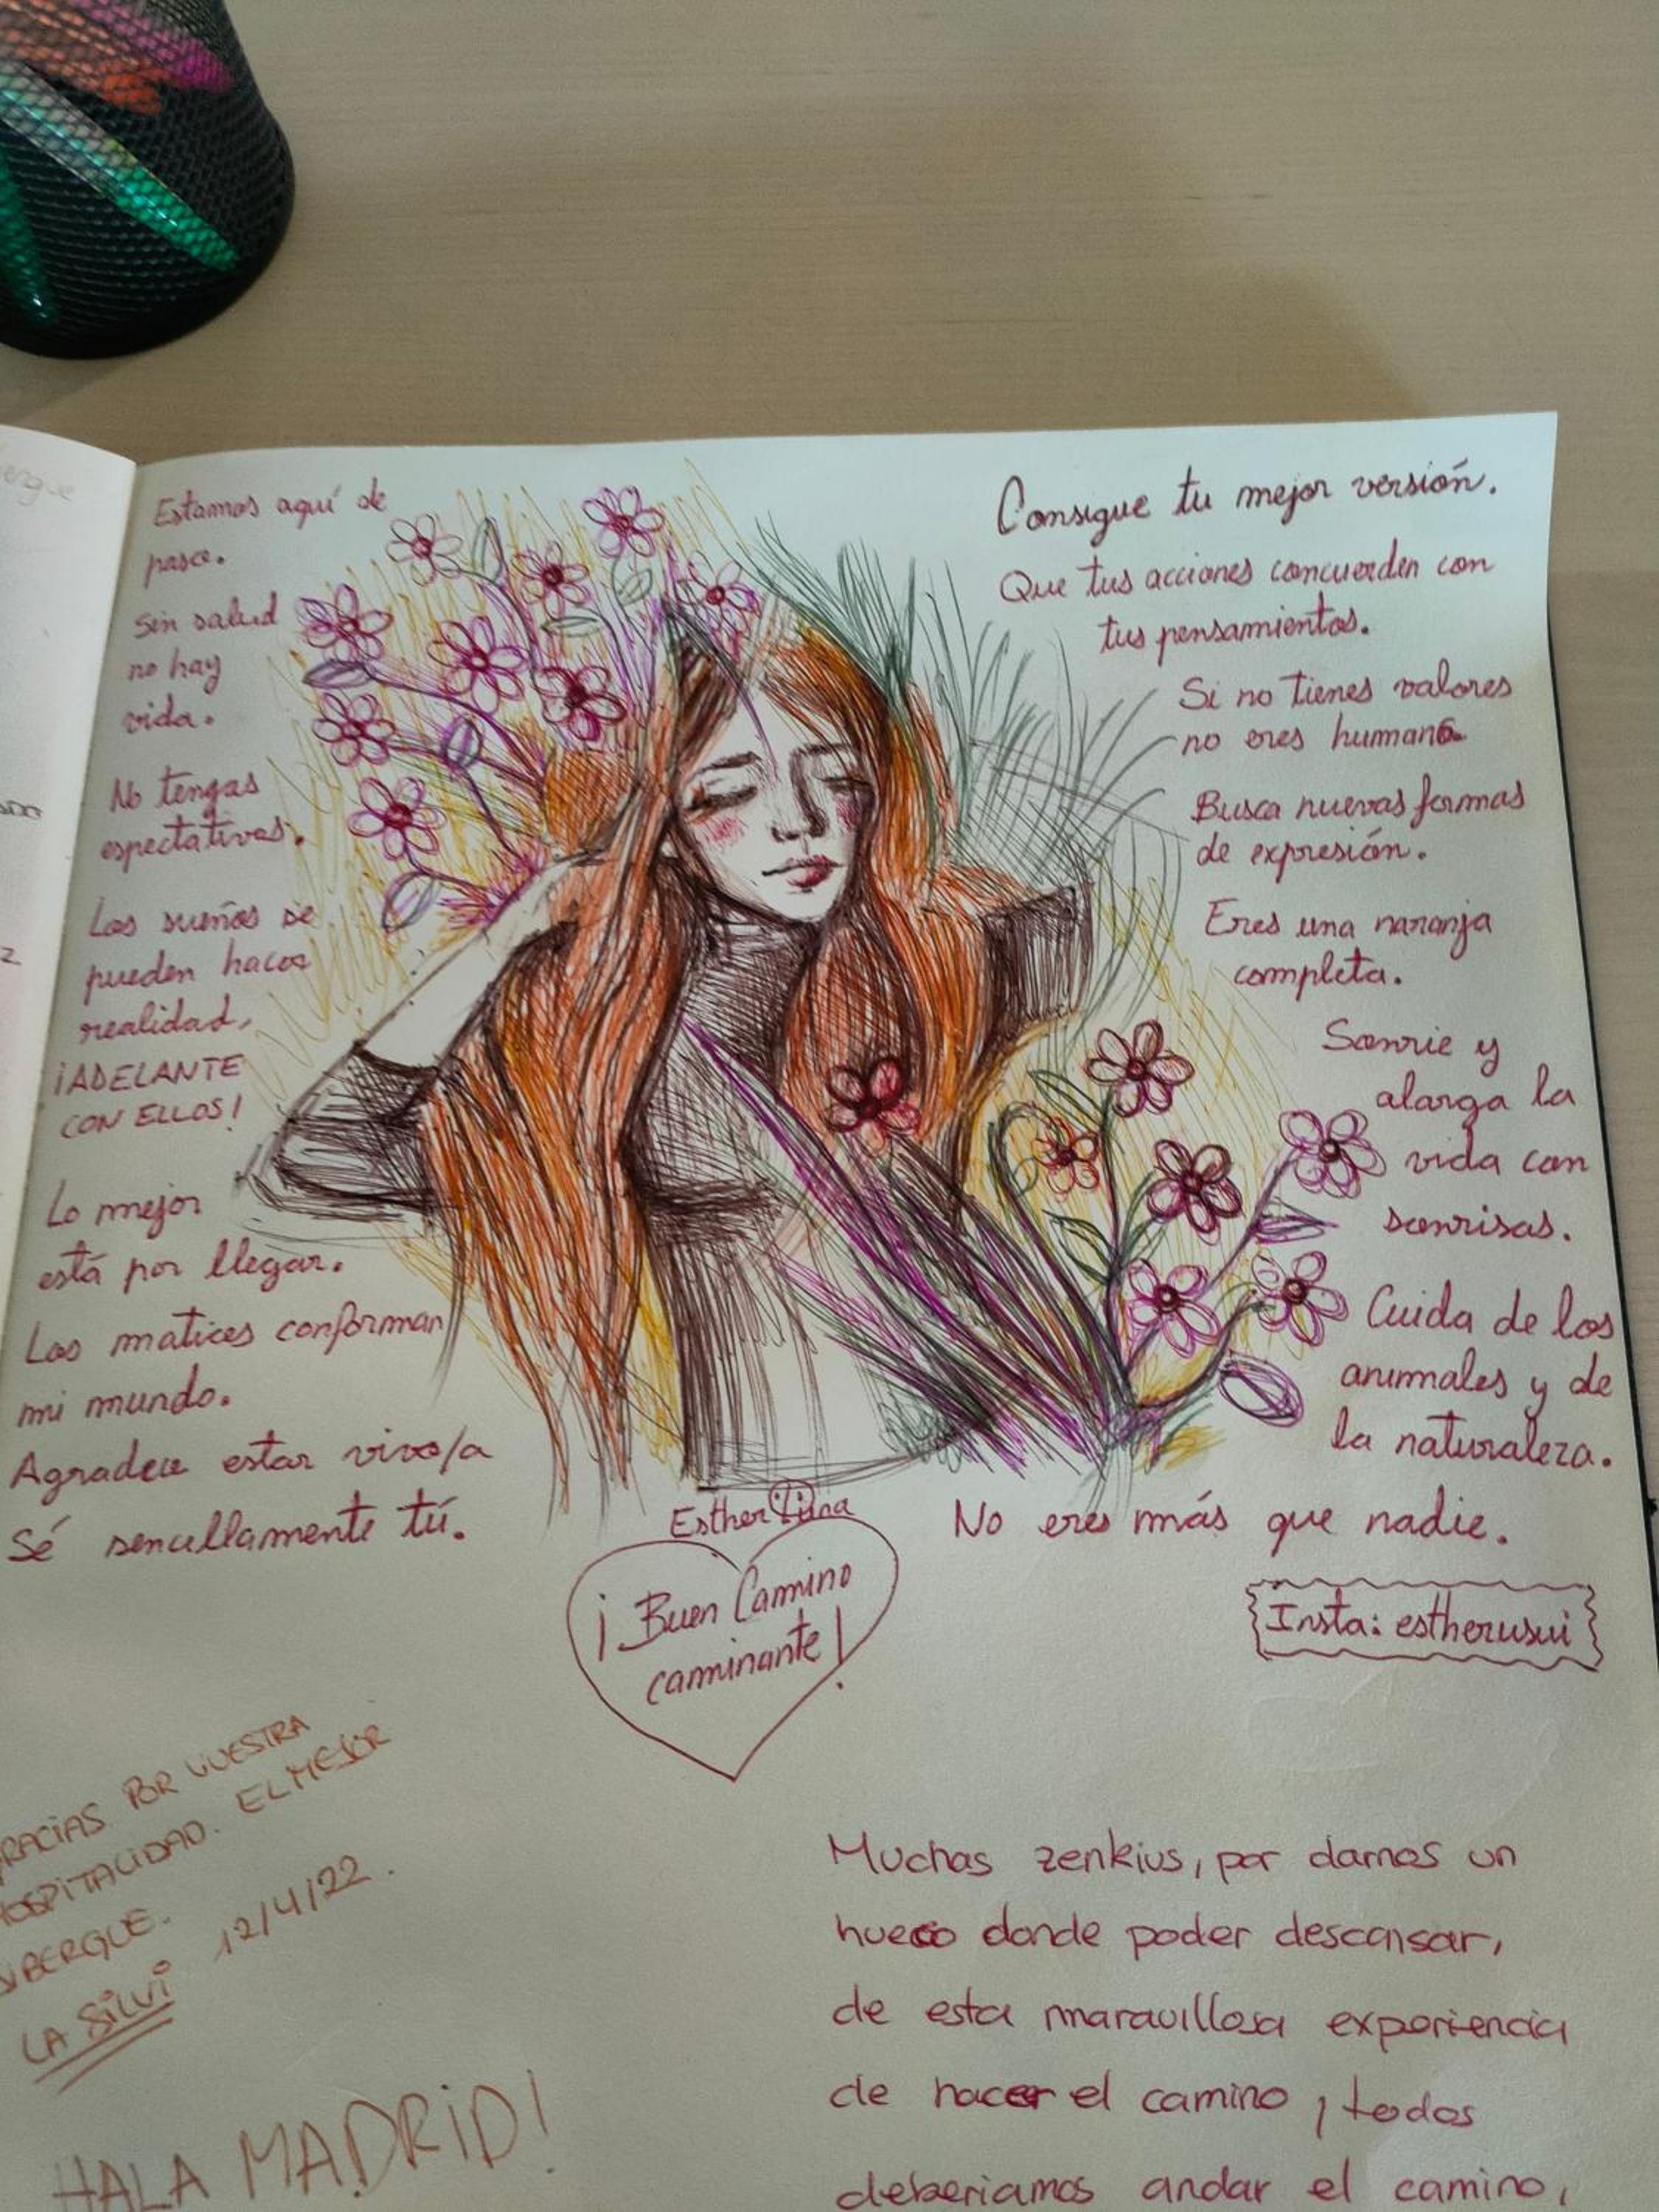 Estamos aquí de
paso.
Sin salud
no hay
vida.
No tengas
espectativas.
Los sueños se
pueden hacer
realidad,
¡ADELANTE
CON ELLOS!
Lo mejor
está por llegar.
Los matices conforman
mi mundo.
Agradece estar vivo/a
Sé sencillamente tú.
Consigue tu mejor versión.
Que tus acciones concuerden con
tus pensamientos.
Si no tienes valores
no eres humano.
Busca nuevas formas
de expresión.
Eres una naranja
completa.
Sonrie y
alarga la
vida con
sonrisas.
Cuida de los
animales y de
la naturaleza.
No eres más que nadie.
Esther Luna
¡Buen Camino
caminante!
Insta: estherusui
GRACIAS POR VUESTRA
HOSPITALIDAD. EL MEJOR
ALBERGUE.
12/4/22.
LA SILVI
HALA MADRID!
Muchas zenkius, por darnos un
hueco donde poder descansar,
de esta maravillosa experiencia
de hacer el camino, todos
deberiamos andar el camino,